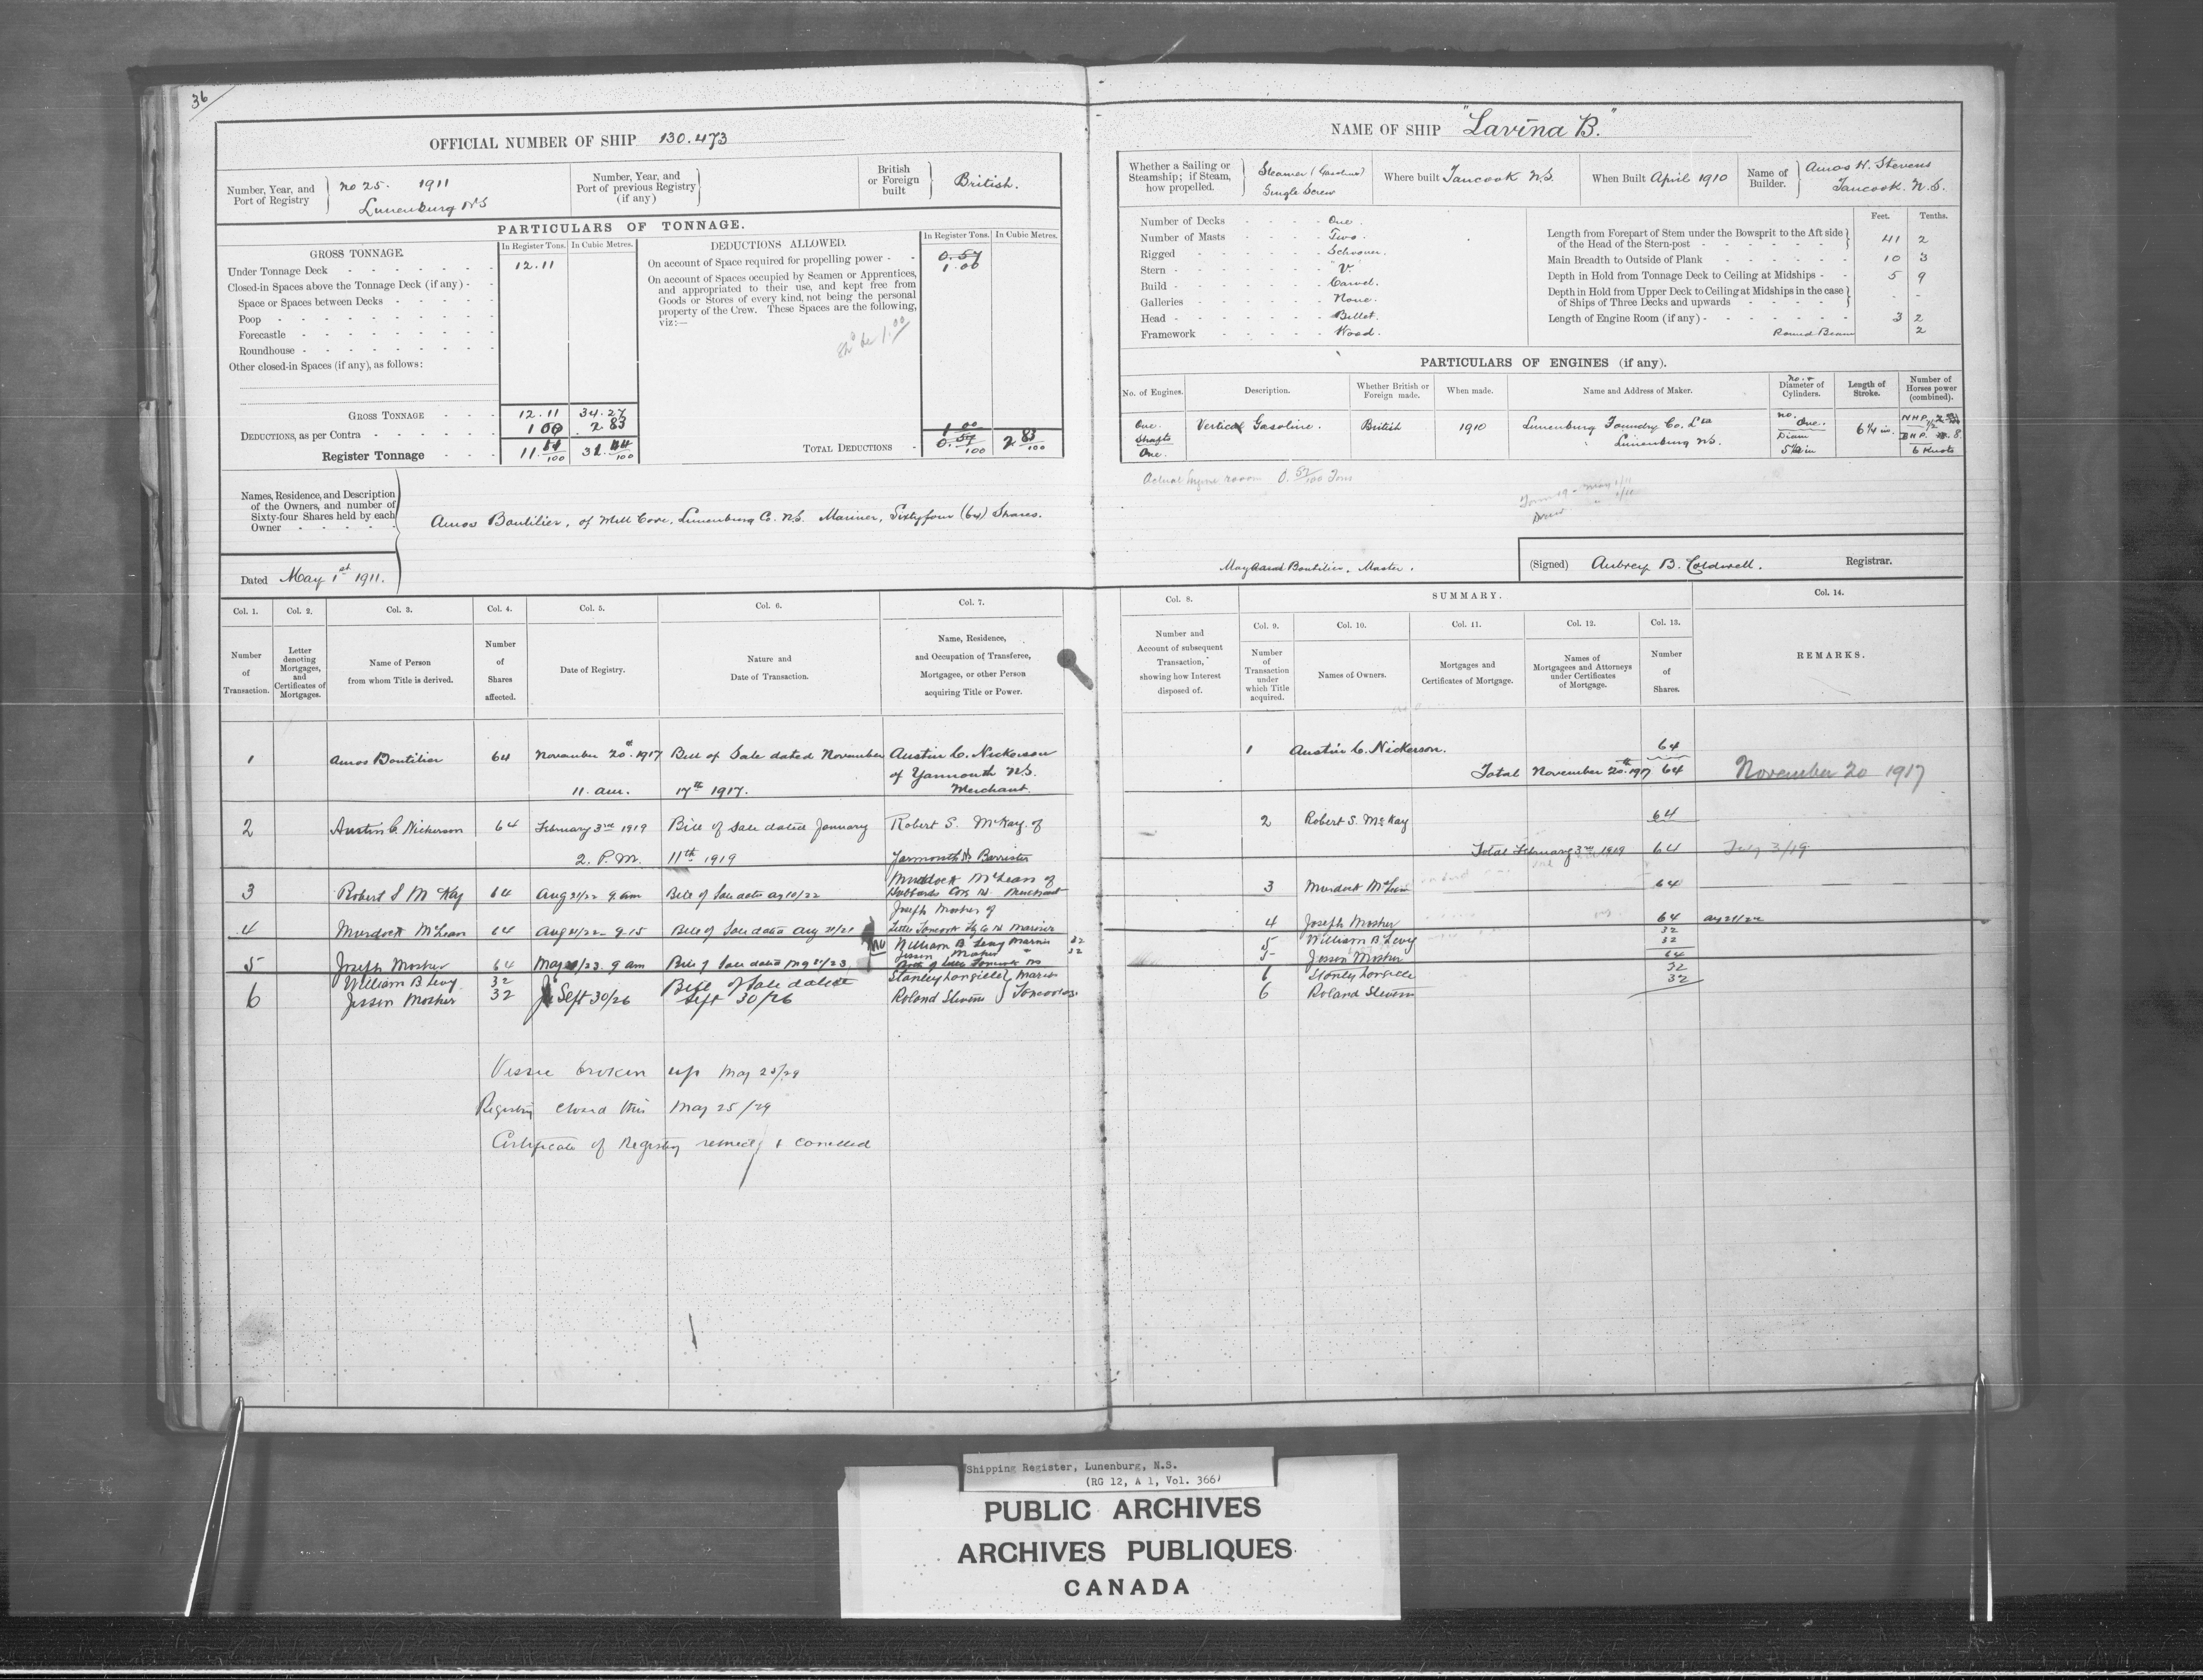 36
OFFICIAL NUMBER OF SHIP 130.473
Number, Year, and Port of Registry
no 25. 1911
Lunenburg NS
Number, Year, and Port of previous Registry (if any)
British or Foreign built
British.
PARTICULARS OF TONNAGE.
GROSS TONNAGE.
In Register Tons.
In Cubic Metres.
Under Tonnage Deck 12.11
Closed-in Spaces above the Tonnage Deck (if any)
Space or Spaces between Decks
Poop
Forecastle
Roundhouse
Other closed-in Spaces (if any), as follows:
GROSS TONNAGE 12.11 34.27
DEDUCTIONS, as per Contra 1 00 2.83
Register Tonnage 11. 31.
DEDUCTIONS ALLOWED.
In Register Tons.
In Cubic Metres.
On account of Space required for propelling power 0.57
1.00
On account of Spaces occupied by Seamen or Apprentices,
and appropriated to their use, and kept free from
Goods or Stores of every kind, not being the personal
property of the Crew. These Spaces are the following,
viz:—
be 1.00
1.00
TOTAL DEDUCTIONS 0.57/100 2 83/100
Names, Residence, and Description
of the Owners, and number of
Sixty-four Shares held by each
Owner
Amos Boutilier, of Mill Cove, Lunenburg Co. N.S. Mariner, Sixtyfour (64) Shares.
Dated May 1st 1911.
NAME OF SHIP "Lavina B."
Whether a Sailing or
Steamship; if Steam,
how propelled.
Steamer (Gasoline)
Single Screw
Where built Tancook N.S.
When Built April 1910
Name of Builder.
Amos H. Stevens
Tancook. N.S.
Number of Decks One.
Number of Masts Two.
Rigged Schooner.
Stern "V."
Build Carvel.
Galleries None.
Head Billet.
Framework Wood.
Feet. Tenths.
Length from Forepart of Stem under the Bowsprit to the Aft side
of the Head of the Stern-post 41 2
Main Breadth to Outside of Plank 10 3
Depth in Hold from Tonnage Deck to Ceiling at Midships 5 9
Depth in Hold from Upper Deck to Ceiling at Midships in the case
of Ships of Three Decks and upwards - -
Length of Engine Room (if any) 3 2
Round Beam 2
PARTICULARS OF ENGINES (if any).
No. of Engines.
Description.
Whether British or Foreign made.
When made.
Name and Address of Maker.
no. &
Diameter of Cylinders.
Length of Stroke.
Number of Horses power (combined).
One.
Shafts
One.
Vertical Gasoline.
British
1910
Lunenburg Foundry Co. Ltd
Lunenburg N.S.
no.
One.
Diam
5½ in
6¼ in.
N.H.P.
B.H.P. 8.
6 Knots
Actual Engine room 0.57/100 Tons
Maynard Boutilier. Master.
(Signed) Aubrey B. Coldwell. Registrar.
Col. 1.
Col. 2.
Col. 3.
Col. 4.
Col. 5.
Col. 6.
Col. 7.
Number of Transaction.
Letter denoting Mortgages, and Certificates of Mortgages.
Name of Person from whom Title is derived.
Number of Shares affected.
Date of Registry.
Nature and Date of Transaction.
Name, Residence, and Occupation of Transferee, Mortgagee, or other Person acquiring Title or Power.
1 Amos Boutilier 64 November 20th 1917 Bill of Sale dated November Austin C. Nickerson
of Yarmouth N.S.
11. a.m. 17th 1917. Merchant.
2 Austin C. Nickerson 64 February 3rd 1919 Bill of Sale dated January Robert S. McKay of
2. P.M. 11th 1919 Yarmouth NS Barrister
Murdock McLean of
3 Robert S McKay 64 Aug 21/22 9. am Bill of Sale date Merchant
Joseph Mosher of
4 Murdock McLean 64 Aug 21/22 9.15 Bill of Sale date Aug Little Tancook Mariner
William B Levy Mariner 32
Mosher 32
5 Joseph Mosher 64 May /23. 9 am Bill of Sale date
William B Levy 32 Bill of Sale dated Stanley Langille Mariners
6 Mosher 32 Sept 30/26 Sept 30/26 Roland Stevens Tancook
Vessel broken up May 25/29
Registry closed this May 25/29
Certificate of Registry received & cancelled
Col. 8.
SUMMARY.
Col. 9.
Col. 10.
Col. 11.
Col. 12.
Col. 13.
Col. 14.
Number and Account of subsequent Transaction, showing how Interest disposed of.
Number of Transaction under which Title acquired.
Names of Owners.
Mortgages and Certificates of Mortgage.
Names of Mortgagees and Attorneys under Certificates of Mortgage.
Number of Shares.
REMARKS.
1 Austin C. Nickerson. 64
Total November 20th 1917 64 November 20 1917
2 Robert S. McKay 64
Total February 3rd 1919 64 Feby 3/19
3 Murdock McLean 64
4 Joseph Mosher 64 Aug 21/22
5 William B Levy 32
32
5 Mosher 64
6 Stanley Langille 32
6 Roland Stevens 32
Shipping Register, Lunenburg, N.S.
(RG 12, A 1, Vol. 366)
PUBLIC ARCHIVES
ARCHIVES PUBLIQUES
CANADA